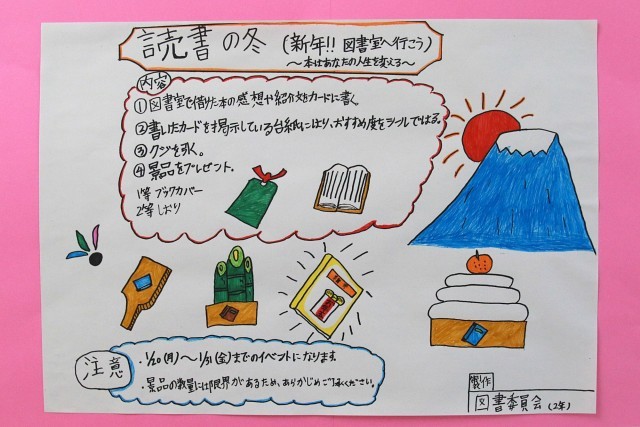 読書の冬 (新年!! 図書室へ行こう)
～本はあなたの人生を変える～
内容
①図書室で借りた本の感想や紹介文をカードに書く。
②書いたカードを掲示している台紙にはり、おすすめ度もシールではる。
③クジを引く。
④景品をプレゼント。
1等 ブックカバー
2等 しおり
注意
・1/20(月)～1/31(金)までのイベントになります。
・景品の数量には限界があるため、ありかじめご了承ください。
製作
図書委員会(2年)